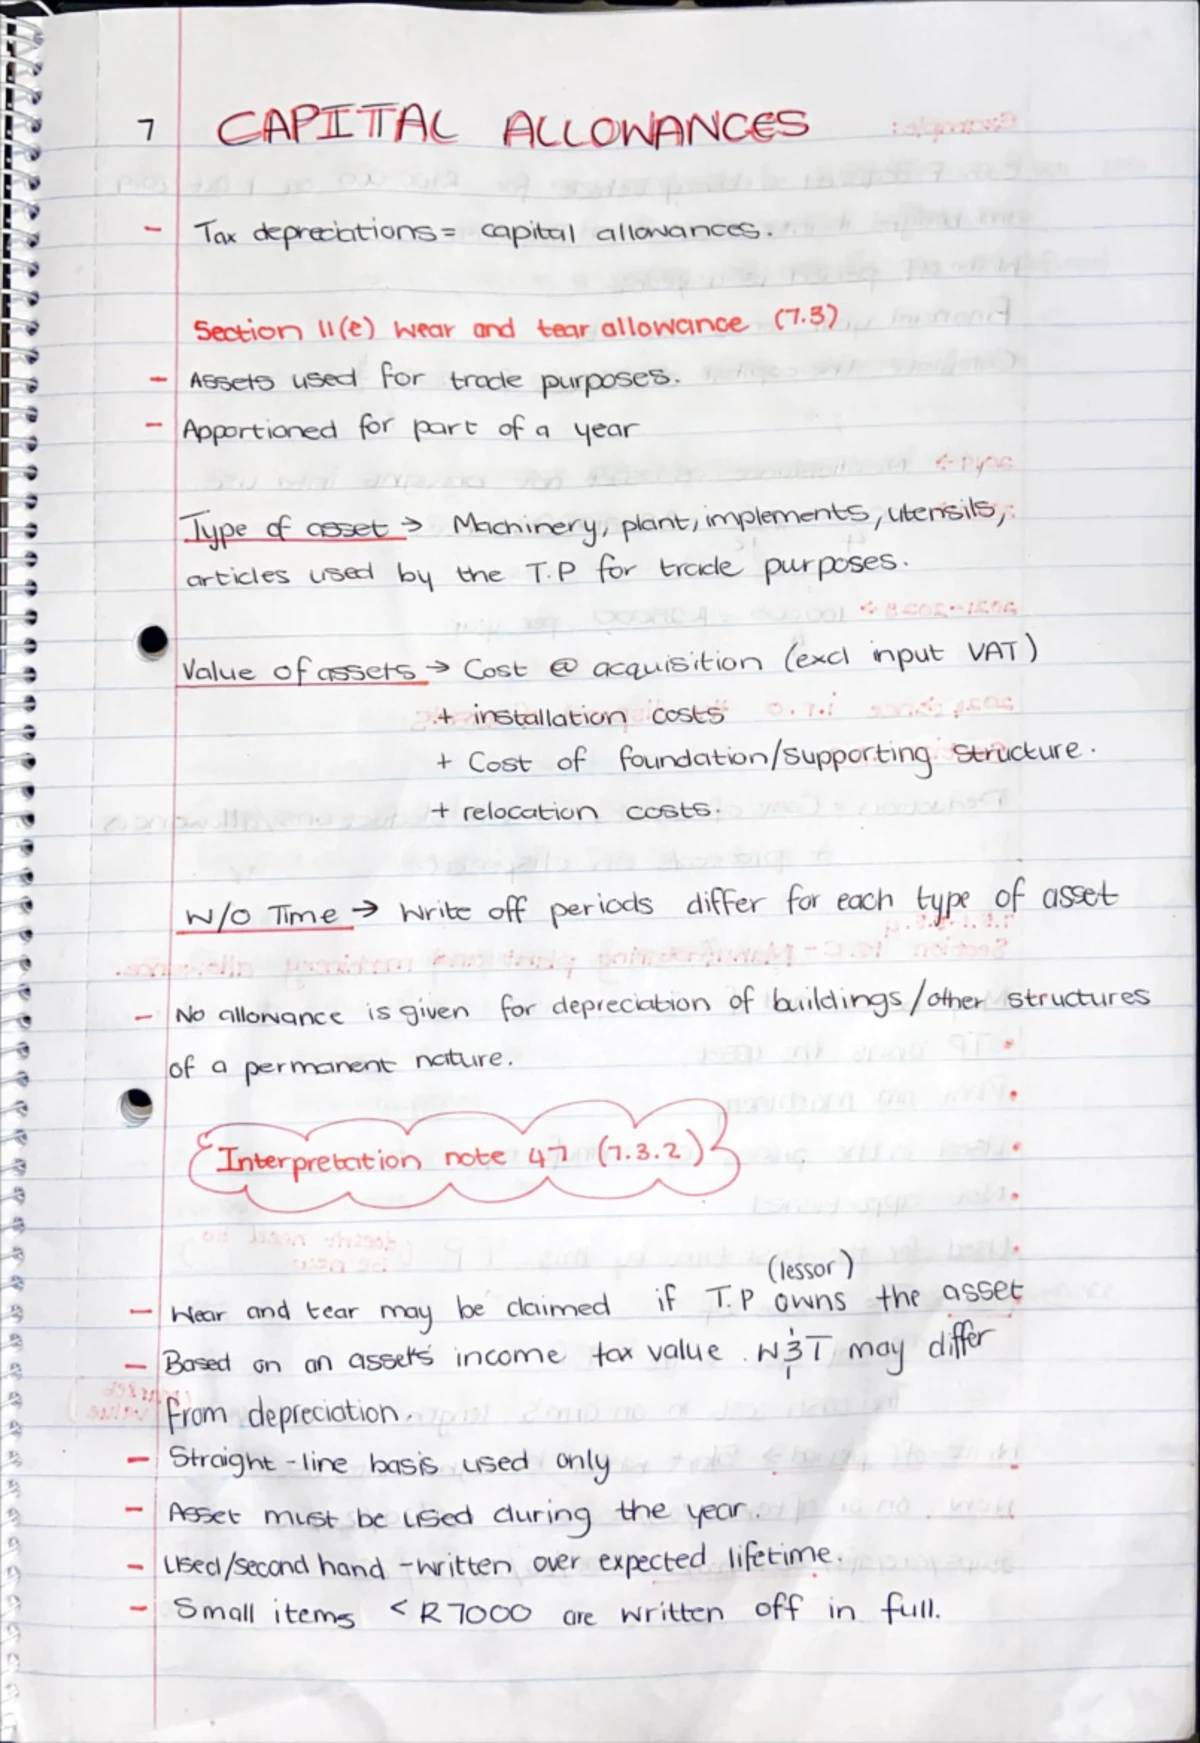 7 CAPITAL ALLOWANCES
- Tax depreciations = capital allowances.
Section 11(e) wear and tear allowance (7.3)
- Assets used for trade purposes.
- Apportioned for part of a year
Type of asset → Machinery, plant, implements, utensils,
articles used by the T.P for trade purposes.
Value of assets → Cost @ acquisition (excl input VAT)
+ installation costs
+ Cost of foundation/supporting structure.
+ relocation costs.
W/O Time → Write off periods differ for each type of asset
- No allowance is given for depreciation of buildings/other structures
of a permanent nature.
Interpretation note 47 (7.3.2)
(lessor)
- Wear and tear may be claimed if T.P owns the asset
- Based on an assets income tax value. W&T may differ
from depreciation.
- Straight-line basis used only
- Asset must be used during the year.
- Used/second hand - written over expected lifetime.
- Small items < R7000 are written off in full.